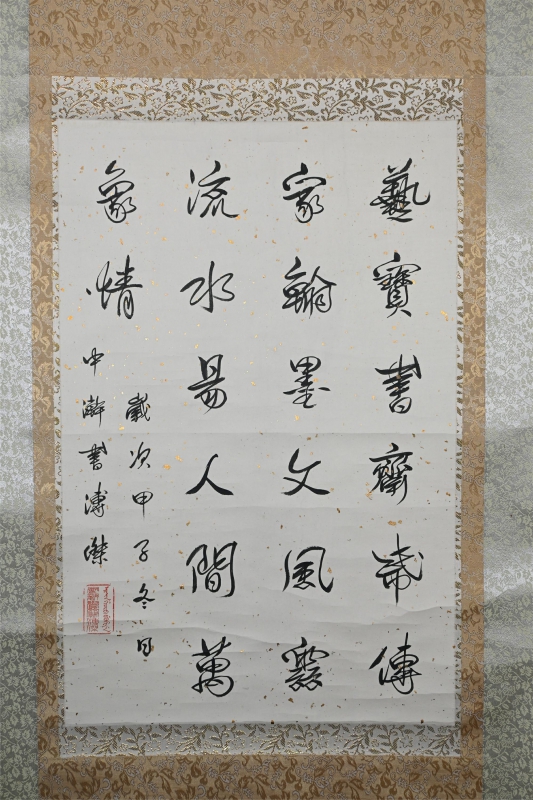 藝寶書齋傳
家翰墨文風
流水易人間萬
象情
歲次甲子冬日
中澣書溥傑